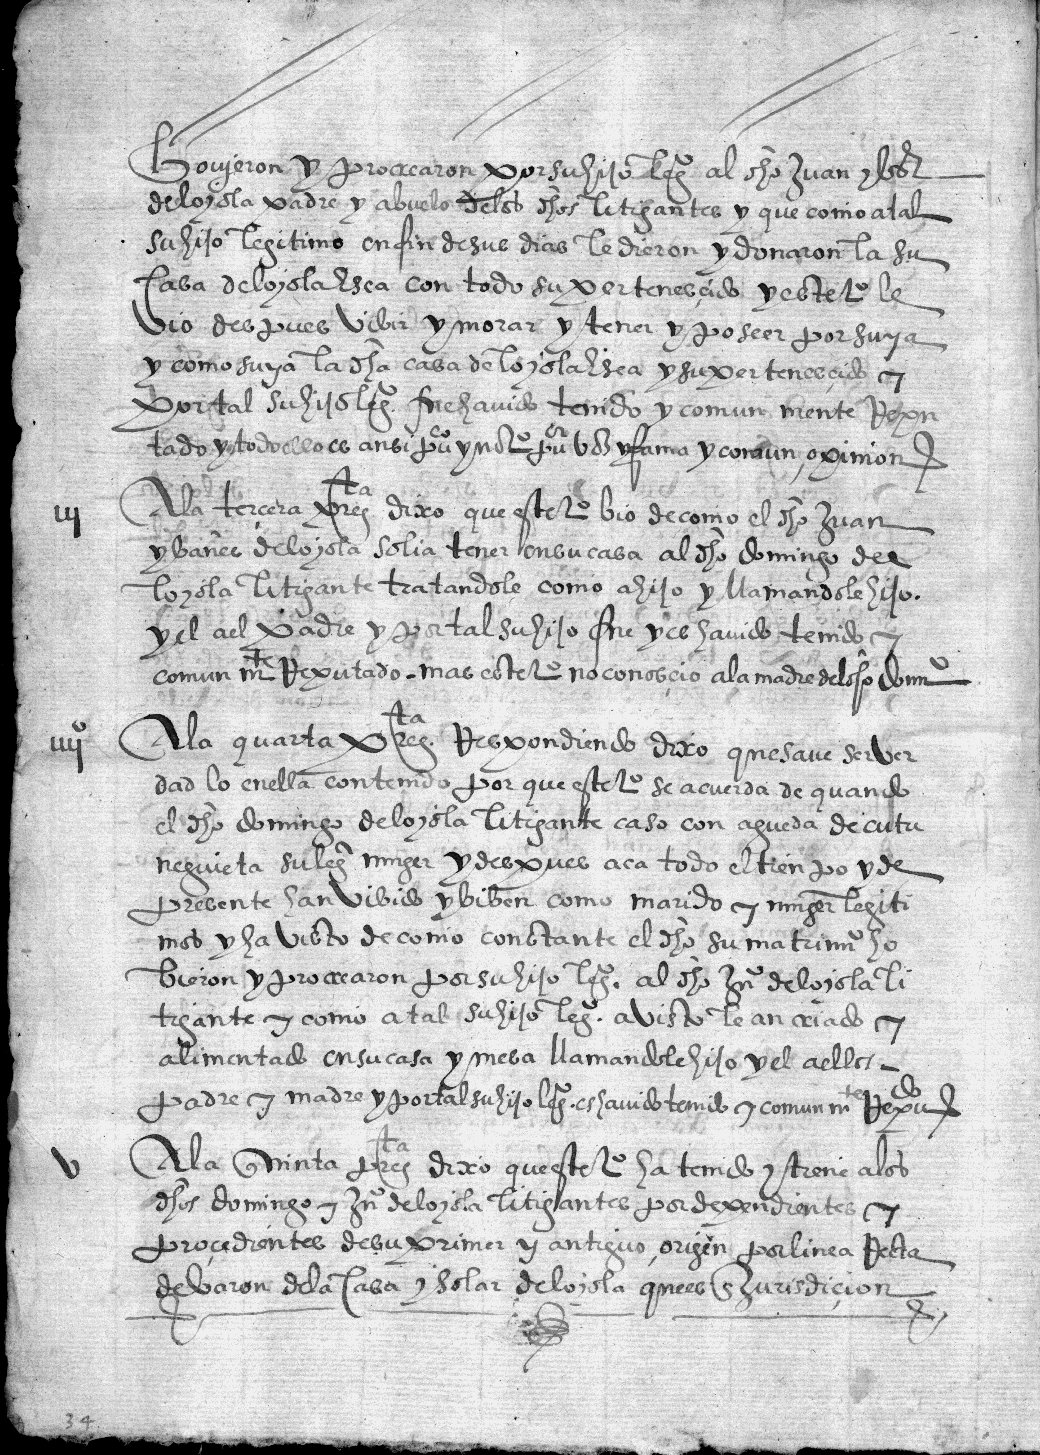 Hovieron y procrearon por su hijo leg° al dho Juan ybañes
de loyola padre y abuelo de los dhos litigantes y que como a tal
su hijo legitimo en fin de sus dias le dieron y donaron la su
casa de loyola lsea con todo su pertenesçido y este t° le
vio despues vibir y morar y tener y poseer por suya
y como suya la dha casa de loyola lsea y su pertenesçido y
por tal su hijo leg° fue havido tenido y comunmente Repu
tado y todo ello es ansi pu^co y not° pu^ca voz y fama y comun opinion
iij A la tercera preg^ta dixo que este t° bio de como el dho Juan
ybañes de loyola solia tener en su casa al dho domingo de
loyola litigante tratandole como a hijo y llamandole hijo.
y el a el padre y por tal su hijo fue y es havido tenido y
comun m^te Reputado. mas este t° no conosçio a la madre del dho dom°
iiij° A la quarta preg^ta. Respondiendo dixo que save ser ver
dad lo en ella contenido por que este t° se acuerda de quando
el dho domingo de loyola litigante caso con agueda de cutu
neguieta su leg^a muger y despues aca todo el tienpo y de
presente han vibido y biben como marido y muger legiti
mos y ha visto de como constante el dho su matrim° ho
bieron y procrearon por su hijo leg°. al dho Ju° de loyola li
tigante y como a tal su hijo leg°. a visto le an criado y
alimentado en su casa y mesa llamandole hijo y el a ellos
padre y madre y por tal su hijo leg°. es havido tenido y comun m^te Repu^do
v A la quinta preg^ta dixo que este t° ha tenido y tiene a los
dhos domingo y Ju° de loyola litigantes por dependientes y
proçedientes de su primer y antiguo origen por linea Recta
de baron de la casa y solar de loyola que es Jurisdiçion
34